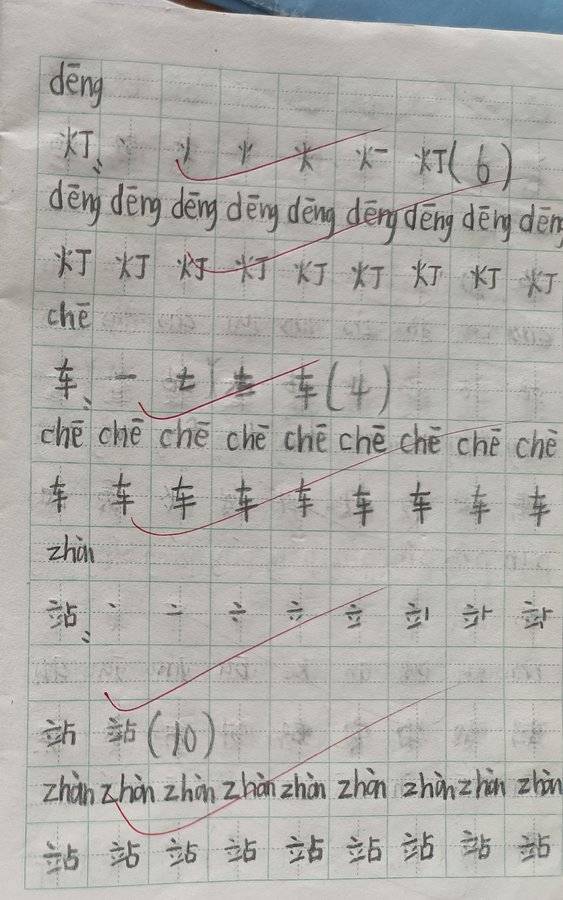 dēng
灯、 丶 丷 ⺌ 火 火一 灯(6)
dēng dēng dēng dēng dēng dēng dēng dēng dēng
灯 灯 灯 灯 灯 灯 灯 灯 灯
chē
车、 一 车(4)
chē chē chē chē chē chē chē chē chē
车 车 车 车 车 车 车 车 车
zhàn
站、 丶 亠 立
站(10)
zhàn zhàn zhàn zhàn zhàn zhàn zhàn zhàn zhàn
站 站 站 站 站 站 站 站 站